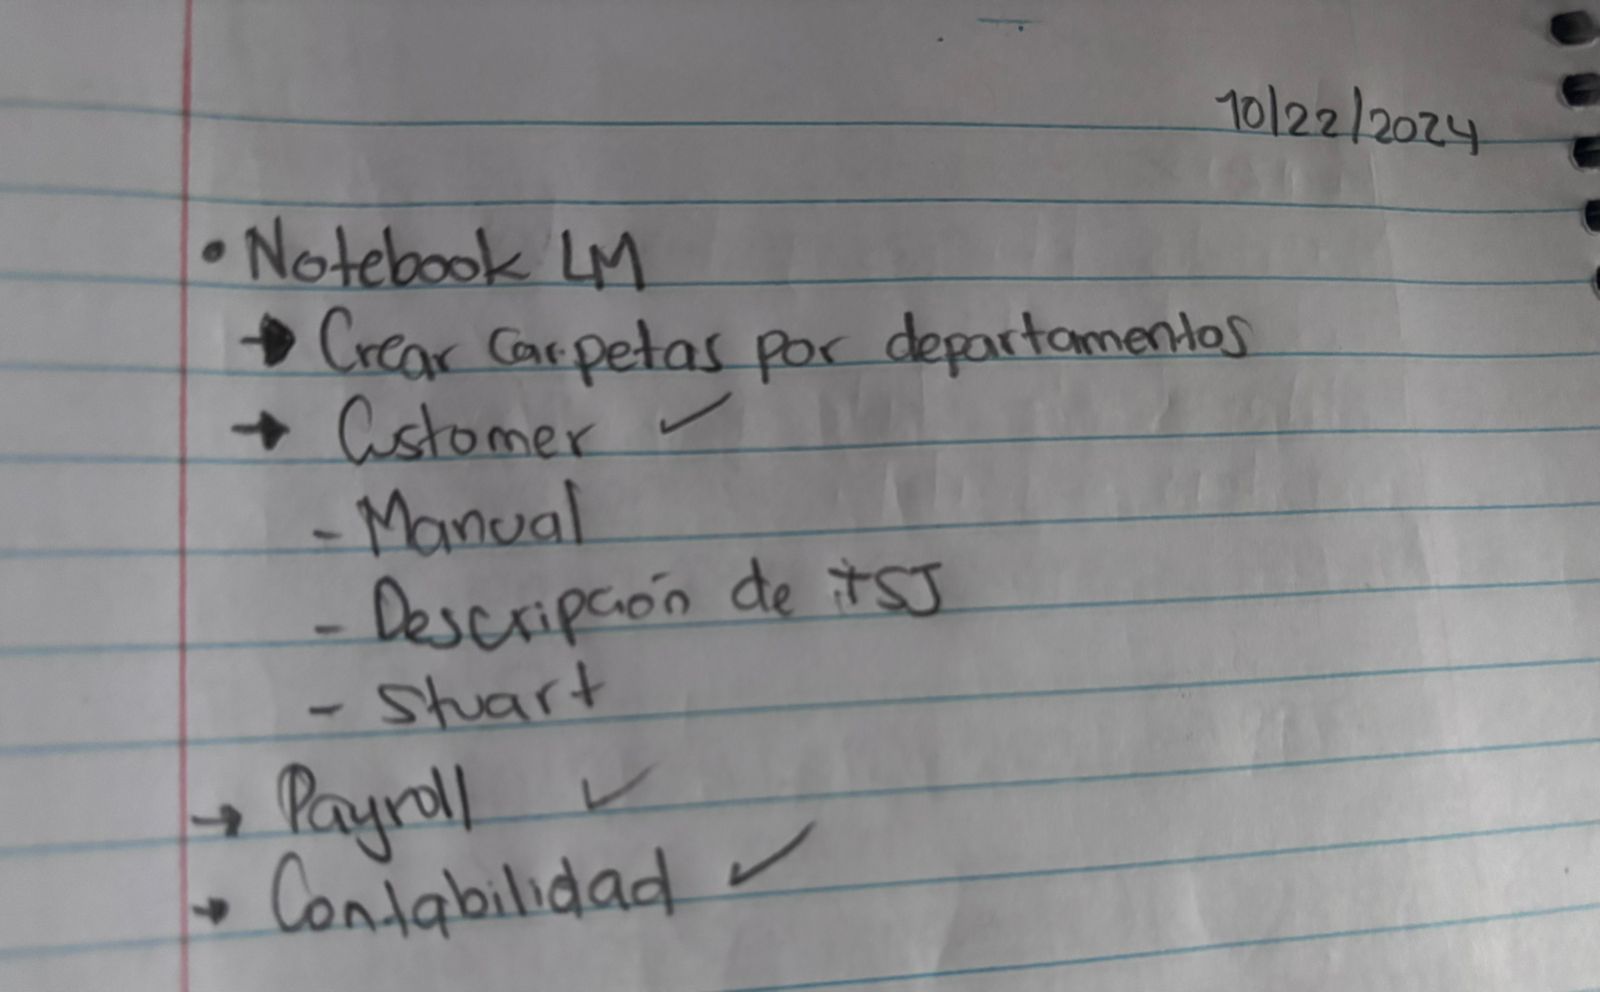 10/22/2024
• Notebook LM
→ Crear carpetas por departamentos
→ Customer ✓
- Manual
- Descripción de
- Stuart
→ Payroll ✓
→ Contabilidad ✓